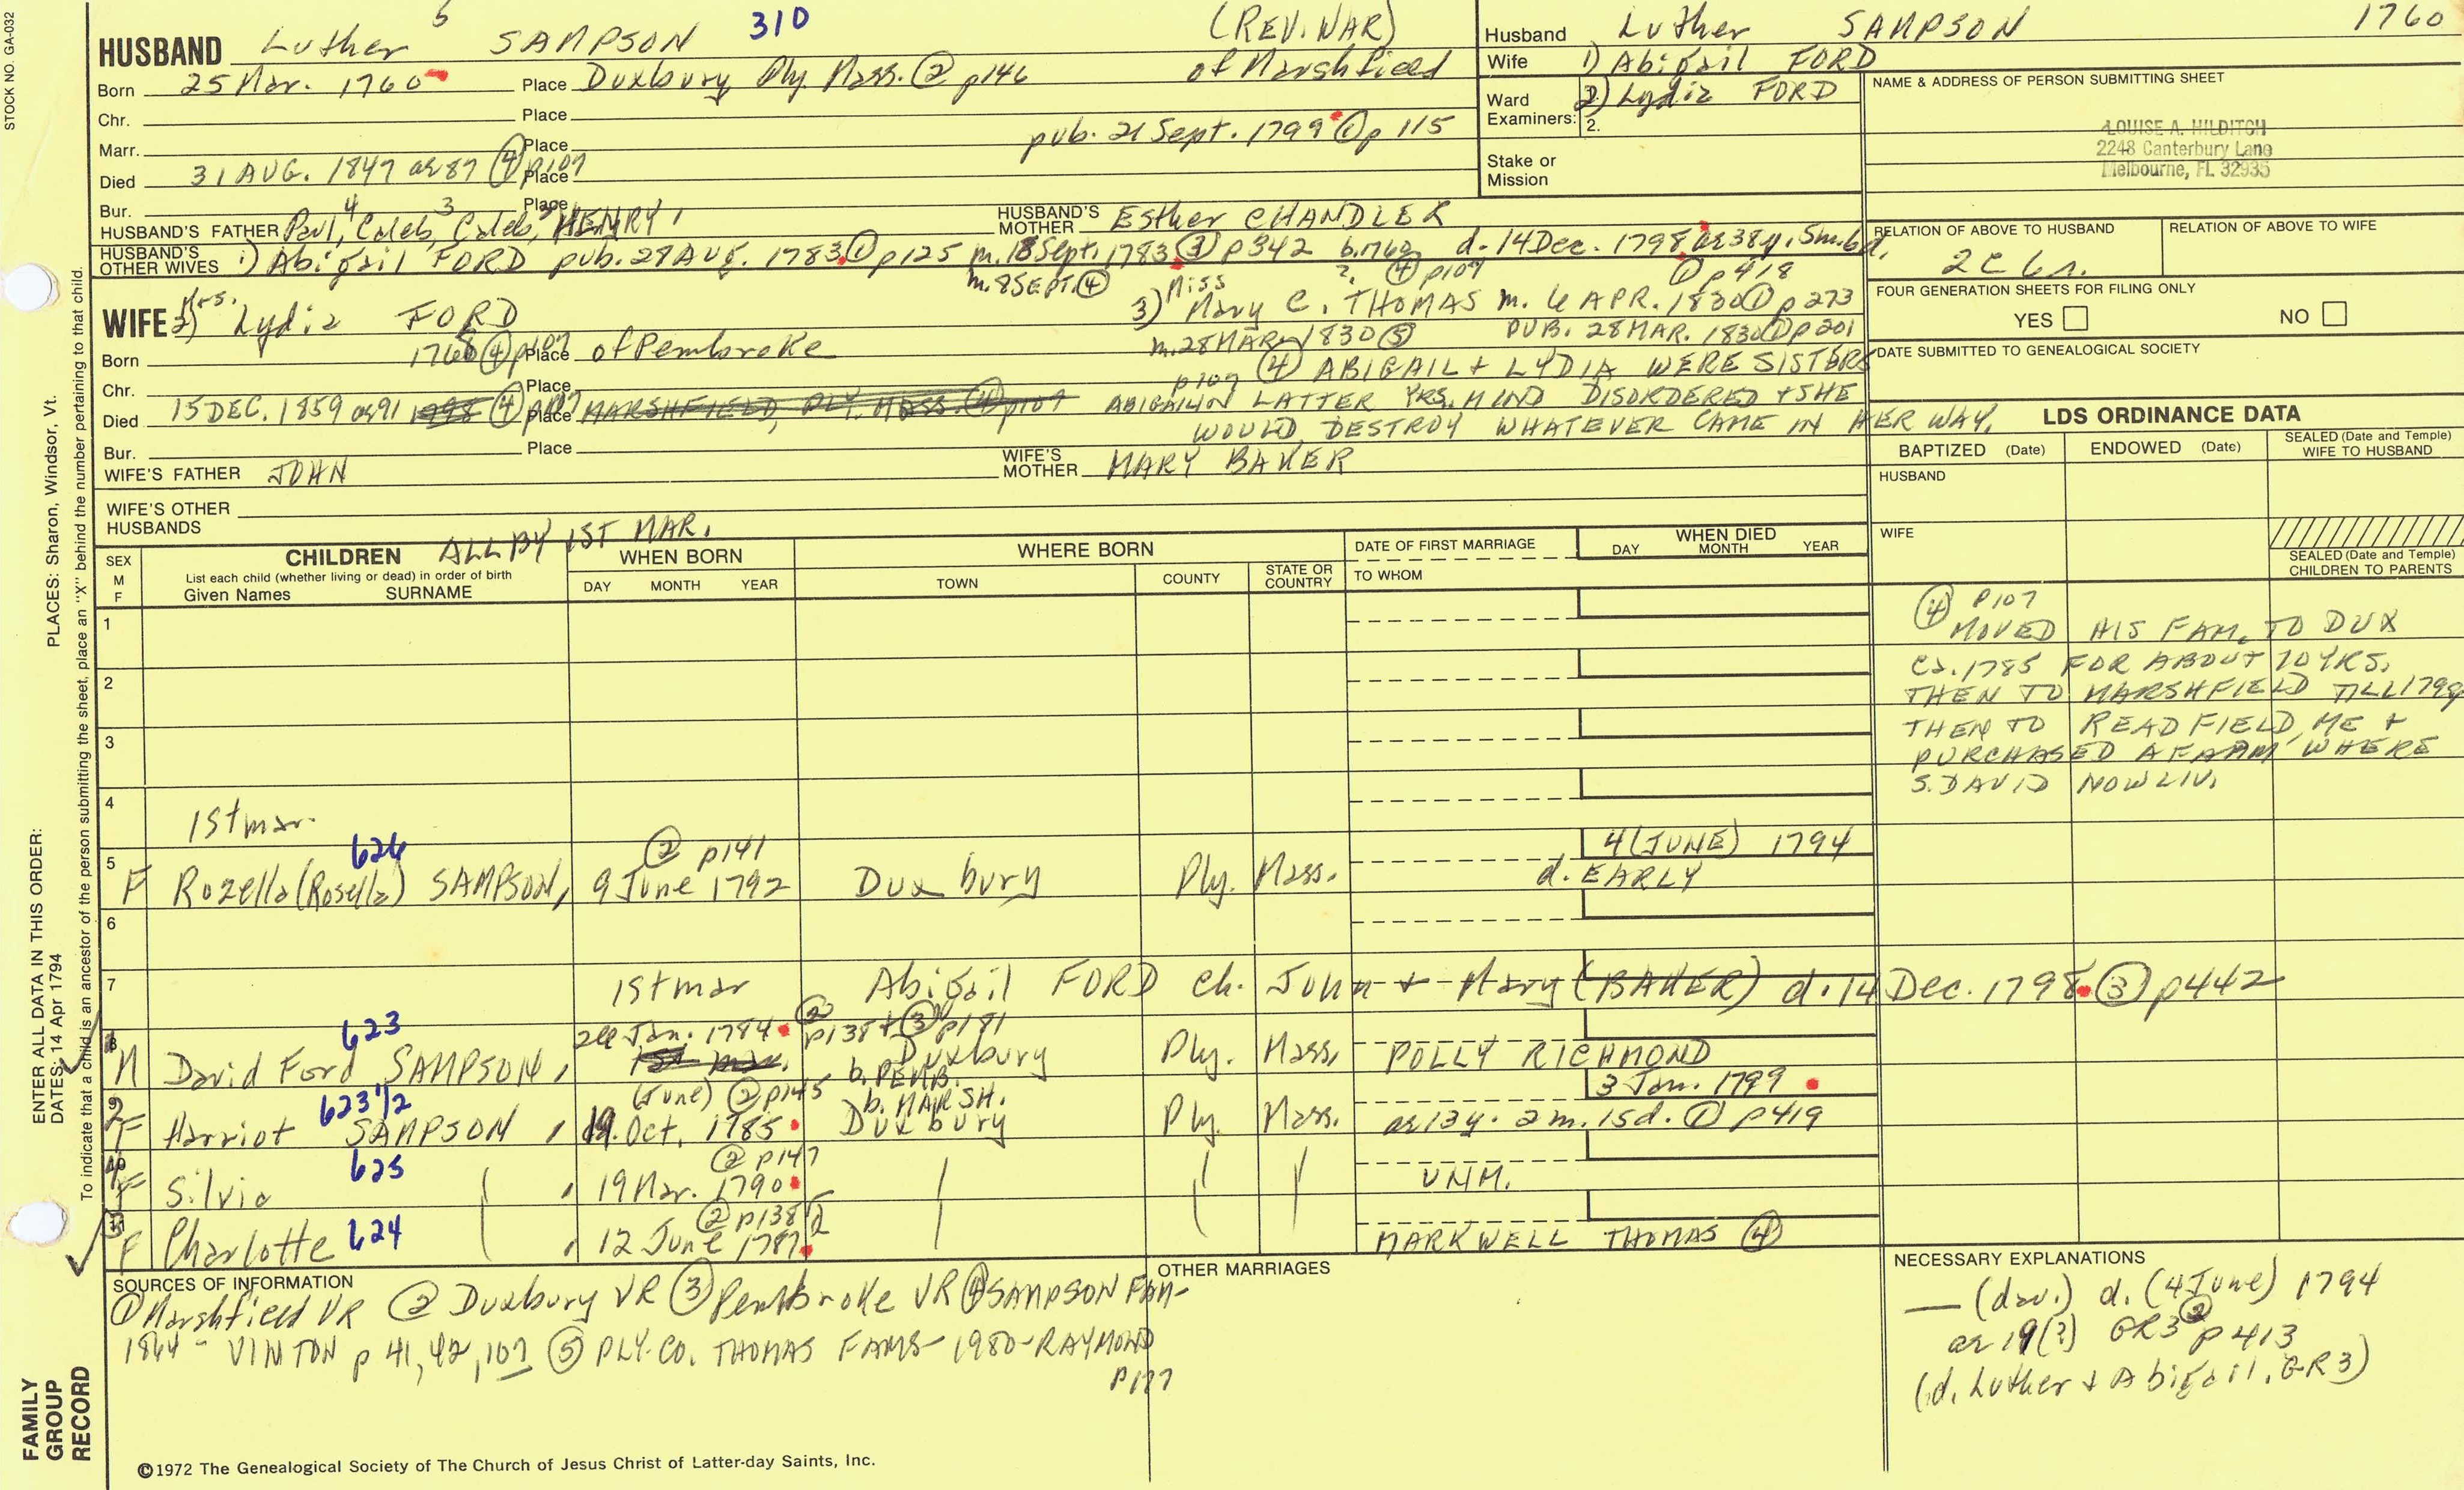 STOCK NO. GA-032
5
310
(REV. WAR)
HUSBAND Luther SAMPSON of Marshfield
Born 25 Mar. 1760 Place Duxbury Ply. Mass. ② p146
Chr. Place
pub. 21 Sept. 1799 ① p 115
Marr. Place
Died 31 AUG. 1847 ae 87 ④ p107 Place
Bur. Place
HUSBAND'S FATHER Paul,4 Caleb,3 Caleb,2 HENRY1 HUSBAND'S MOTHER Esther CHANDLER
HUSBAND'S OTHER WIVES 1) Abigail FORD pub. 28 AUG. 1783 ① p125 m. 18 Sept. 1783 ③ p342 b. 1760 d. 14 Dec. 1798 ae 38 y. 5m. 6d.
m. 8 SEPT. ④ ? ④ p107 ① p418
Husband Luther SAMPSON 1760
Wife 1) Abigail FORD
2) Lydia FORD
Ward Examiners: 1.
2.
Stake or Mission
NAME & ADDRESS OF PERSON SUBMITTING SHEET
LOUISE A. HILDITCH
2248 Canterbury Lane
Melbourne, FL 32935
RELATION OF ABOVE TO HUSBAND RELATION OF ABOVE TO WIFE
2C 6r.
FOUR GENERATION SHEETS FOR FILING ONLY
YES NO
DATE SUBMITTED TO GENEALOGICAL SOCIETY
Mrs.
WIFE 2) Lydia FORD
3) Miss Mary C. THOMAS m. 6 APR. 1830 ① p 273
m. 28 MAR. 1830 ⑤ PUB. 28 MAR. 1830 ① p 201
Born 1768 ④ p107 Place of Pembroke
p107 ④ ABIGAIL + LYDIA WERE SISTERS
Chr. Place
ABIGAIL IN LATTER YRS. MIND DISORDERED + SHE
WOULD DESTROY WHATEVER CAME IN HER WAY.
Died 15 DEC. 1859 ae 91 1798 ④ p107 Place MARSHFIELD, PLY. MASS. ④ p107
Bur. Place
WIFE'S FATHER JOHN WIFE'S MOTHER MARY BAKER
WIFE'S OTHER HUSBANDS
LDS ORDINANCE DATA
BAPTIZED (Date) ENDOWED (Date) SEALED (Date and Temple) WIFE TO HUSBAND
HUSBAND
WIFE
SEALED (Date and Temple) CHILDREN TO PARENTS
SEX M F
CHILDREN ALL BY 1ST MAR.
List each child (whether living or dead) in order of birth
Given Names SURNAME
WHEN BORN
DAY MONTH YEAR
WHERE BORN
TOWN COUNTY STATE OR COUNTRY
DATE OF FIRST MARRIAGE
TO WHOM
WHEN DIED
DAY MONTH YEAR
1
2
3
4
1st mar.
④ P107
MOVED HIS FAM. TO DUX
ca. 1785 FOR ABOUT 10 YRS.
THEN TO MARSHFIELD TILL 1799
THEN TO READFIELD, ME +
PURCHASED A FARM WHERE
S. DAVID NOW LIV.
626 ② p141 4 (JUNE) 1794
5 F Rozella (Rosella) SAMPSON, 9 June 1792 Duxbury Ply. Mass. d. EARLY
6
7 1st mar Abigail FORD ch. John + Mary (BAKER) d. 14 Dec. 1798 ③ p442
623 Jan. 1784 ② p138 + ③ p181
M David Ford SAMPSON, 1st mar. Duxbury b. PEMB. Ply. Mass. POLLY RICHMOND
623 1/2 (June) ② p145 b. MARSH. 3 Jan. 1799
F Harriot SAMPSON, 19 Oct. 1785 Duxbury Ply. Mass. ae 13y. 2m. 15d. ① p419
625 ② p147
F Silvia 19 Mar. 1790 UNM.
② p138
F Charlotte 624 12 June 1787 MARKWELL THOMAS ④
SOURCES OF INFORMATION
① Marshfield VR ② Duxbury VR ③ Pembroke VR ④ SAMPSON FAM-
1864 - VINTON p 41, 42, 107 ⑤ PLY. CO. THOMAS FAMS - 1980 - RAYMOND
P177
OTHER MARRIAGES
NECESSARY EXPLANATIONS
— (dau.) d. (4 June) 1794
ae 19(?) GR3 ② p 413
(d. Luther + Abigail, GR3)
©1972 The Genealogical Society of The Church of Jesus Christ of Latter-day Saints, Inc.
PLACES: Sharon, Windsor, Vt.
ENTER ALL DATA IN THIS ORDER:
DATES: 14 Apr 1794
To indicate that a child is an ancestor of the person submitting the sheet, place an "X" behind the number pertaining to that child.
FAMILY GROUP RECORD